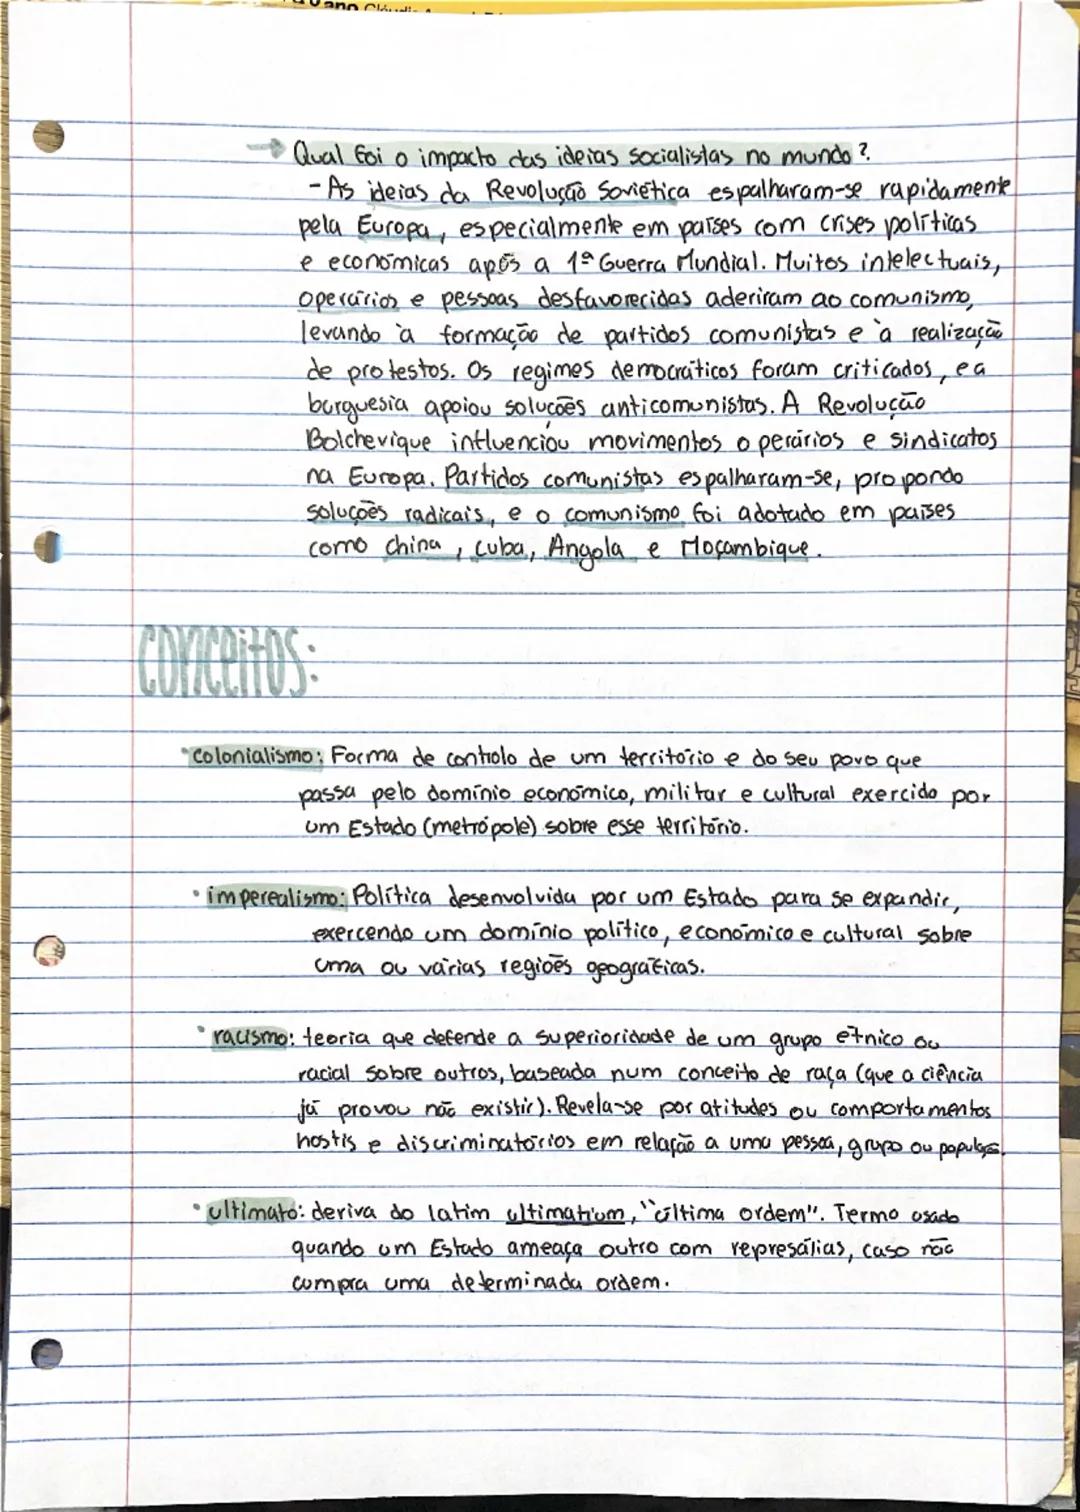 → Qual foi o impacto das ideias socialistas no mundo?
- As ideias da Revolução Soviética espalharam-se rapidamente
pela Europa, especialmente em países com crises políticas
e económicas após a 1ª Guerra Mundial. Muitos intelectuais,
operários e pessoas desfavorecidas aderiram ao comunismo,
levando à formação de partidos comunistas e à realização
de protestos. Os regimes democráticos foram criticados, e a
burguesia apoiou soluções anticomunistas. A Revolução
Bolchevique influenciou movimentos operários e sindicatos
na Europa. Partidos comunistas espalharam-se, propondo
soluções radicais, e o comunismo foi adotado em países
como china, cuba, Angola e Moçambique.
conceitos:
• colonialismo: Forma de controlo de um território e do seu povo que
passa pelo domínio económico, militar e cultural exercido por
um Estado (metrópole) sobre esse território.
• imperealismo: Política desenvolvida por um Estado para se expandir,
exercendo um domínio político, económico e cultural sobre
uma ou várias regiões geográficas.
• racismo: teoria que defende a superioridade de um grupo étnico ou
racial sobre outros, baseada num conceito de raça (que a ciência
já provou não existir). Revela-se por atitudes ou comportamentos
hostis e discriminatórios em relação a uma pessoa, grupo ou
• ultimato: deriva do latim ultimatium, "última ordem". Termo usado
quando um Estado ameaça outro com represálias, caso não
cumpra uma determinada ordem.